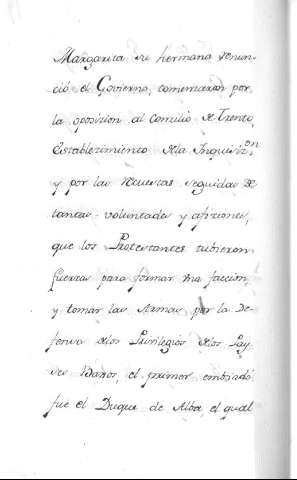 Margarita su hermana renun-
ció el Govierno, comenzaron por
la oposicion al Concilio de Trento,
establecimiento de la Inquiziz.on
y por las Revueltas seguidas de
tantas voluntades y afiziones,
que los Protestantes tubieron
fuerzas para formar una faccion,
y tomar las Armas por la De-
fensa de los Privilegios de los Pay-
ses Baxos, el primer embiado
fue el Duque de Alba, el qual